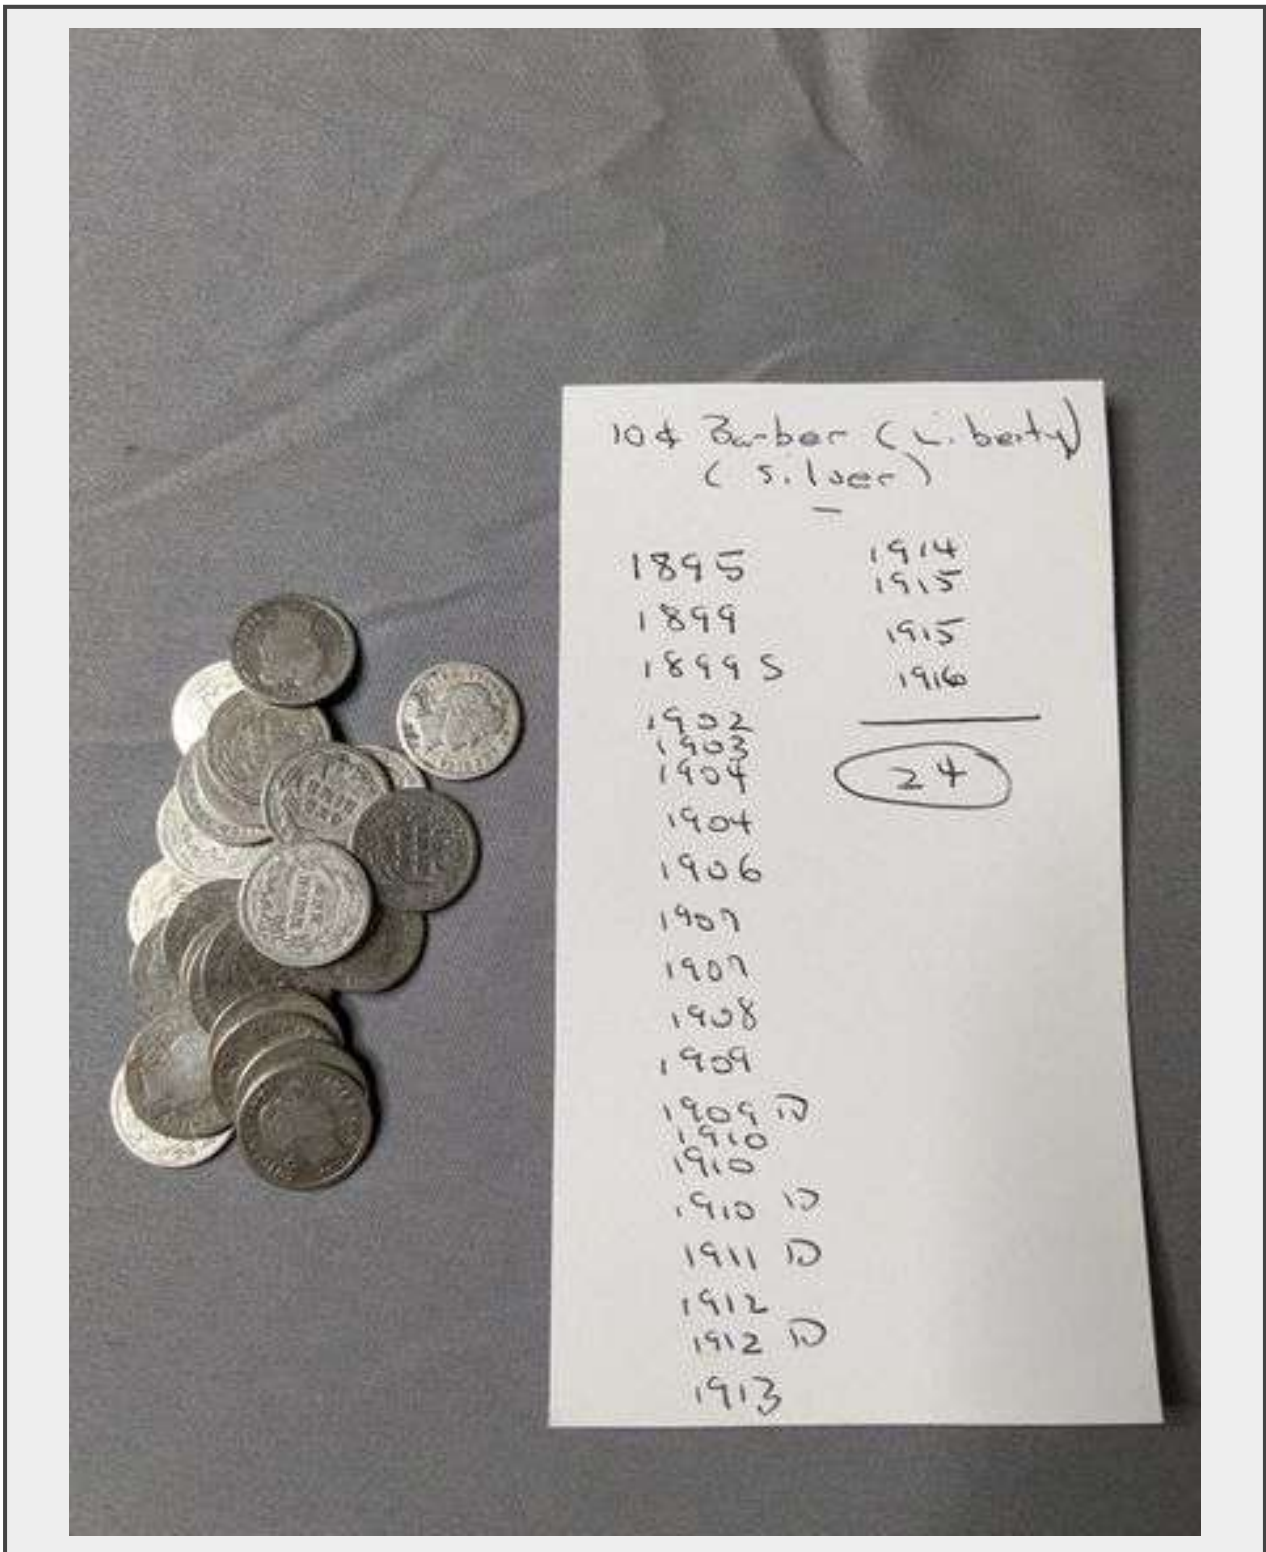 10¢ Barber (Liberty)
(Silver)
1895
1899
1899 S
1902
1903
1904
1904
1906
1907
1907
1908
1909
1909 D
1910
1910
1910 D
1911 D
1912
1912 D
1913
1914
1915
1915
1916
24